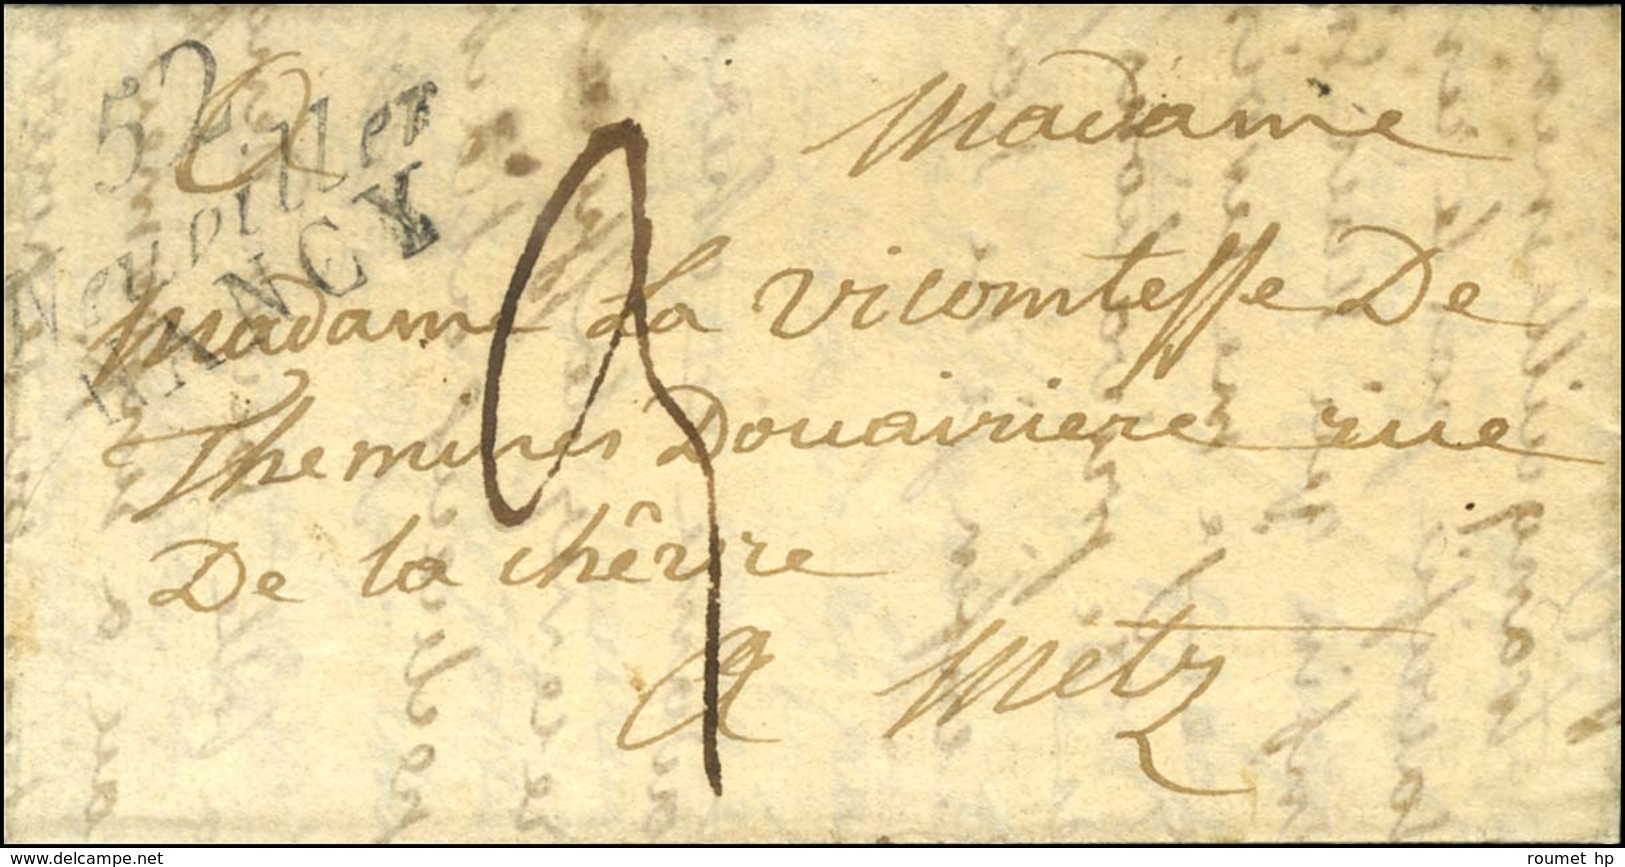 52.
Neuviller
NANCY
A
Madame
Madame La Vicomtesse De
Themines Douairiere rue
De la chêvre
A Metz
www.delcampe.net
roumet hp